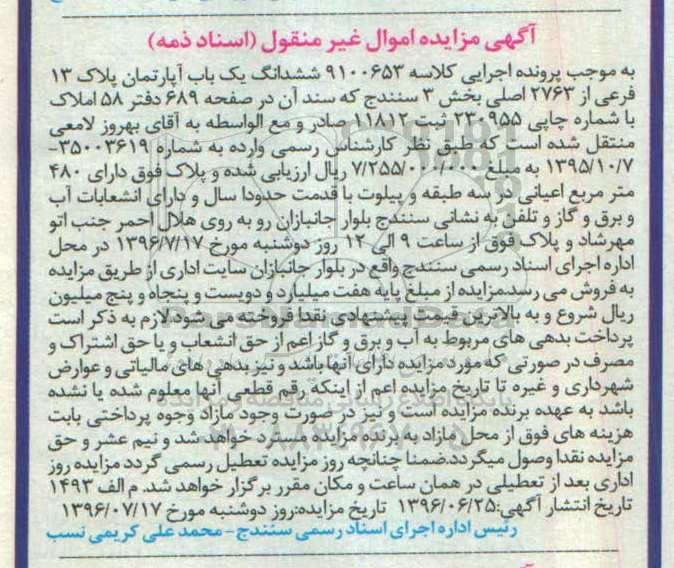 آگهی مزایده اموال غیر منقول (اسناد ذمه)
به موجب پرونده اجرایی کلاسه ۹۱۰۰۶۵۳ ششدانگ یک باب آپارتمان پلاک ۱۳
فرعی از ۲۷۶۳ اصلی بخش ۳ سنندج که سند آن در صفحه ۶۸۹ دفتر ۵۸ املاک
با شماره چاپی ۲۳۰۹۵۵ ثبت ۱۱۸۱۲ صادر و مع الواسطه به آقای بهروز لامعی
منتقل شده است که طبق نظر کارشناس رسمی وارده به شماره ۳۵۰۰۳۶۱۹-
۱۳۹۵/۱۰/۷ به مبلغ ۷/۲۵۵/۰۰۰/۰۰۰ ریال ارزیابی شده و پلاک فوق دارای ۴۸۰
متر مربع اعیانی در سه طبقه و پیلوت با قدمت حدودا سال و دارای انشعابات آب
و برق و گاز و تلفن به نشانی سنندج بلوار جانبازان رو به روی هلال احمر جنب اتو
مهرشاد و پلاک فوق از ساعت ۹ الی ۱۲ روز دوشنبه مورخ ۱۳۹۶/۷/۱۷ در محل
اداره اجرای اسناد رسمی سنندج واقع در بلوار جانبازان سایت اداری از طریق مزایده
به فروش می رسد.مزایده از مبلغ پایه هفت میلیارد و دویست و پنجاه و پنج میلیون
ریال شروع و به بالاترین قیمت پیشنهادی نقدا فروخته می شود.لازم به ذکر است
پرداخت بدهی های مربوط به آب و برق و گاز اعم از حق انشعاب و یا حق اشتراک و
مصرف در صورتی که مورد مزایده دارای آنها باشد و نیز بدهی های مالیاتی و عوارض
شهرداری و غیره تا تاریخ مزایده اعم از اینکه رقم قطعی آنها معلوم شده یا نشده
باشد به عهده برنده مزایده است و نیز در صورت وجود مازاد وجوه پرداختی بابت
هزینه های فوق از محل مازاد به برنده مزایده مسترد خواهد شد و نیم عشر و حق
مزایده نقدا وصول میگردد.ضمنا چنانچه روز مزایده تعطیل رسمی گردد مزایده روز
اداری بعد از تعطیلی در همان ساعت و مکان مقرر برگزار خواهد شد. م الف ۱۴۹۳
تاریخ انتشار آگهی:۱۳۹۶/۰۶/۲۵ تاریخ مزایده:روز دوشنبه مورخ ۱۳۹۶/۰۷/۱۷
رئیس اداره اجرای اسناد رسمی سنندج- محمد علی کریمی نسب